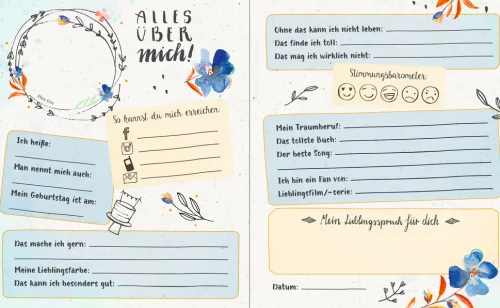 ALLES
ÜBER
mich!
So kannst du mich erreichen:
Ich heiße:
Man nennt mich auch:
Mein Geburtstag ist am:
Das mache ich gern:
Meine Lieblingsfarbe:
Das kann ich besonders gut:
Ohne das kann ich nicht leben:
Das finde ich toll:
Das mag ich wirklich nicht:
Stimmungsbarometer:
Mein Traumberuf:
Das tollste Buch:
Der beste Song:
Ich bin ein Fan von:
Lieblingsfilm/-serie:
Mein Lieblingsspruch für dich
Datum: